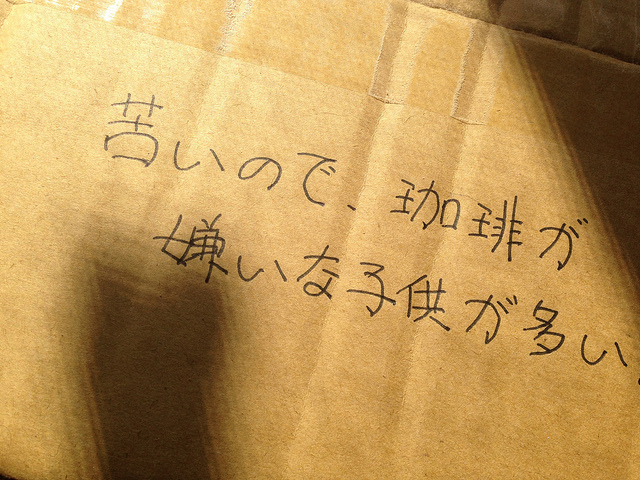 苦いので、珈琲が
嫌いな子供が多い。